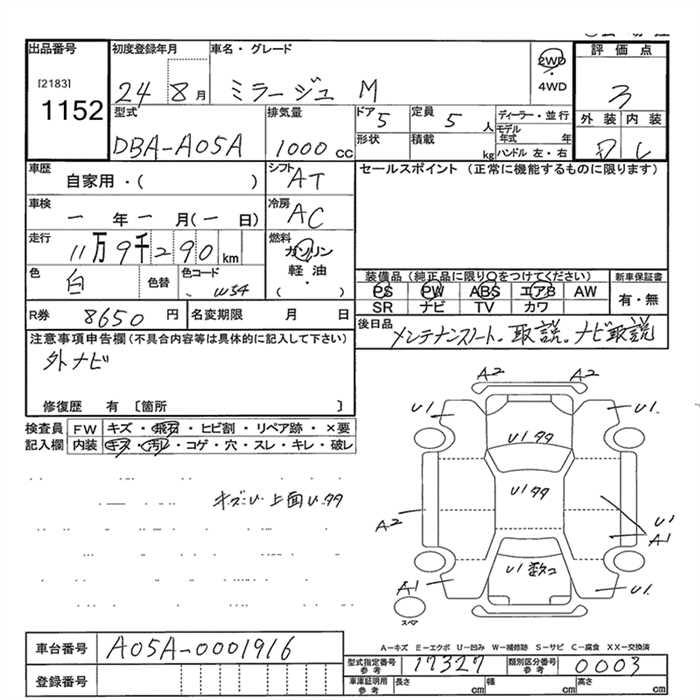 出品番号 初度登録年月 車名・グレード 評価点
[2183]
1152
24 8月 ミラージュ M 2WD・4WD 3
型式 排気量 ドア 定員 ディーラー・並行 外装 内装
DBA-A05A 1000 cc 5 5 人 モデル年式 年
形状 積載 kg ハンドル 左・右
車歴 シフト セールスポイント (正常に機能するものに限ります)
自家用・( ) AT
車検 冷房
ー 年 ー 月(ー日) AC
走行 燃料
11万9千290km ガソリン・軽油・( )
色 色替 色コード 装備品(純正品に限り○をつけてください) 新車保証書
白 W54 PS PW ABS エアB AW 有・無
SR ナビ TV カワ
R券 8650 円 名変期限 月 日 後日品
メンテナンスノート。取説。ナビ取説
注意事項申告欄(不具合内容等は具体的に記入して下さい)
外ナビ
修復歴 有 〔箇所 〕
検査員 FW キズ・飛石・ヒビ割・リペア跡・×要
記入欄 内装 キズ・汚れ・コゲ・穴・スレ・キレ・破レ
キズ・U・上面U.99
A2 A2
U1 U1
U1 99
U1 99
A2 U1
A1
U1 数コ
A1 U1
スペア
A-キズ E-エクボ U-凹み W-補修跡 S-サビ C-腐食 XX-交換済
車台番号 A05A-0001916
型式指定番号 参考 17327 類別区分番号 参考 0003
登録番号 車庫証明用 参考 長さ cm 幅 cm 高さ cm